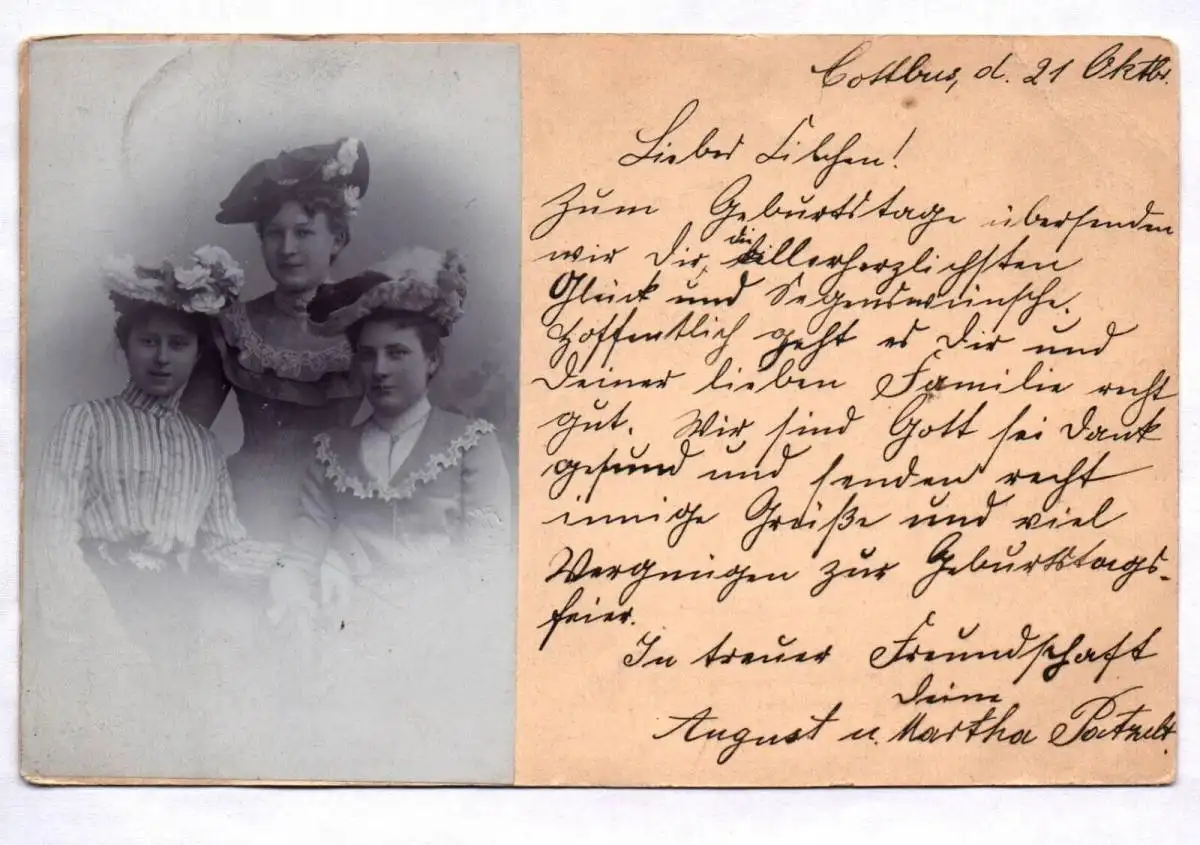 Cottbus, d. 21 Oktbr.
Liebes Lilchen!
Zum Geburtstage übersenden
wir Dir, die allerherzlichsten
Glück und Segenswünsche.
Hoffentlich geht es Dir und
Deiner lieben Familie recht
gut. Wir sind Gott sei Dank
gesund und senden recht
innige Grüße und viel
Vergnügen zur Geburtstags-
feier.
In treuer Freundschaft
Deine
August u. Martha